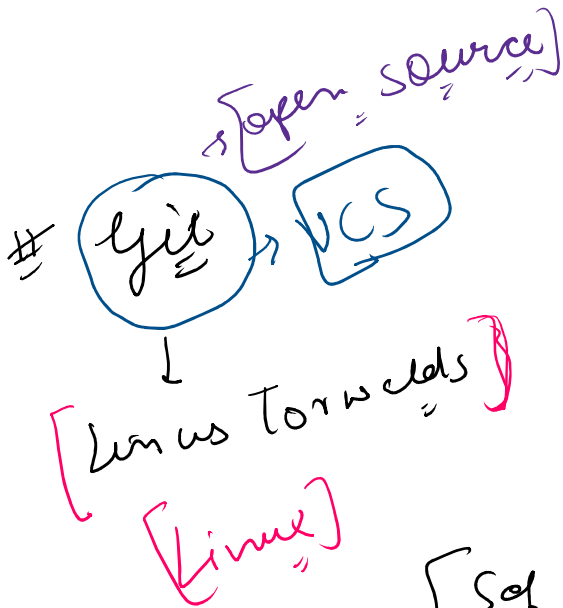 [open source]
# Git → VCS
[Linus Torwalds]
[Linux]